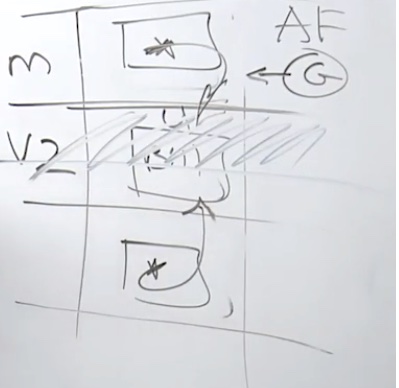 AF
m
G
V2